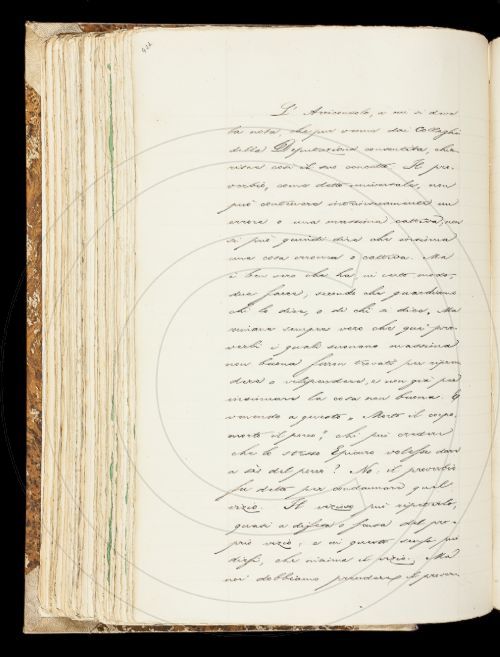 L'Arciconsolo, a cui si deve
la nota, che pur venne dai Colleghi
della Deputazione consentita, chia-
risce così il suo concetto. Il pro-
verbio, come detto universale, non
può contenere intrinsecamente un
errore o una massima cattiva, non
si può quindi dire che insinua
una cosa erronea o cattiva. Ma
è ben vero che ha, in certo modo,
due facce, secondo che guardiamo
chi lo dice, o di chi si dice. Ma
rimane sempre vero che quei pro-
verbi i quali suonano massima
non buona furon trovati per ripren
dere o vilipendere, e non già per
insinuare la cosa non buona. E
venendo a questo "Morto il corpo,
morto il porco", chi può credere
che lo stesso Epicuro volesse dare
a sè del porco? No: il proverbio
fu detto per condannare quel
vizio. Il vizioso può ripeterlo,
quasi a difesa o scusa del pro-
prio vizio; e in questo senso può
dirsi, che insinua il vizio. Ma
noi dobbiamo prendere il prover-